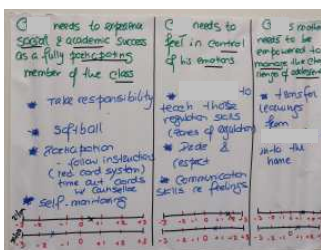 C needs to experience
social & academic success
as a fully participating
member of the class
* Take responsibility
* Softball
* Participation
- follow instruction
(red card system)
time out cards
w counsellor
* Self-monitoring
-3 -2 -1 0 +1 +2 +3
C needs to
feel in control
of his emotions
* to
teach those
regulation skills
(Zones of regulation)
* &
respect
* Communication
skills re feelings
-3 -2 -1 0 +1 +2 +3
C s mother
needs to be
empowered to
manage the
* transfer
learnings
from
into the
home
-3 -2 -1 0 +1 +2 +3